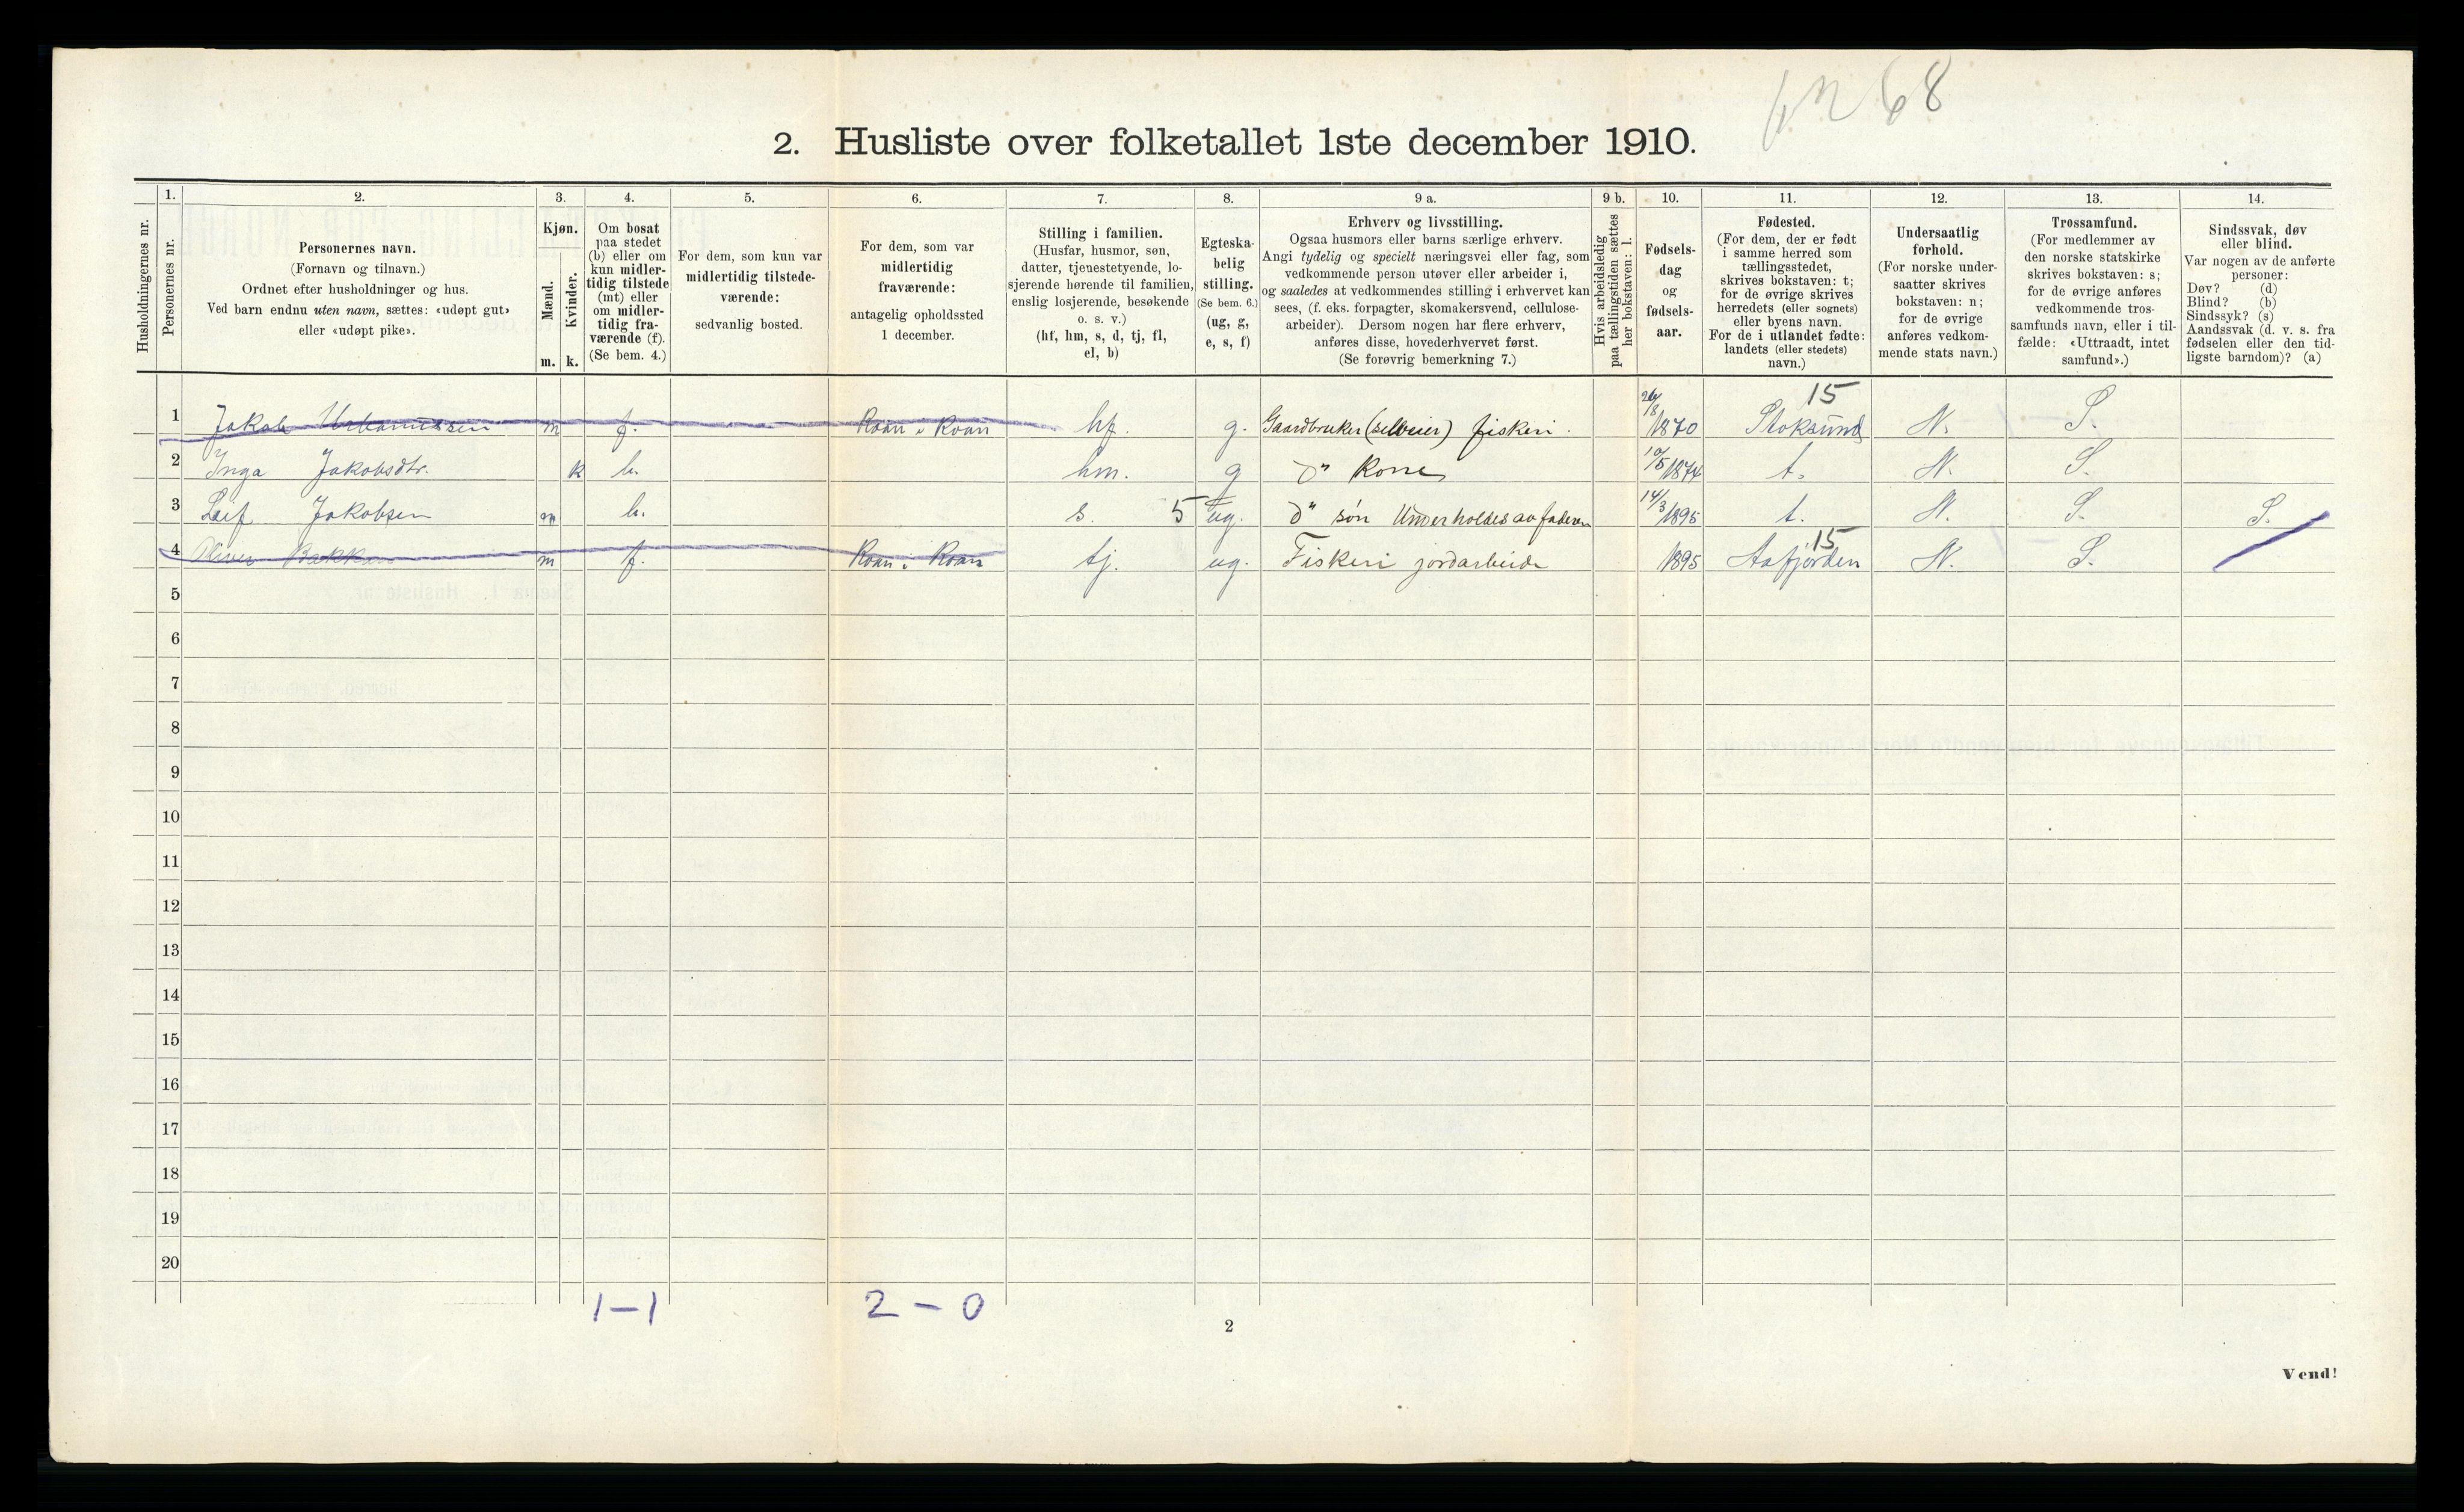 68
2. Husliste over folketallet 1ste december 1910.
Husholdningernes nr.
1.
Personernes nr.
2.
Personernes navn.
(Fornavn og tilnavn.)
Ordnet efter husholdninger og hus.
Ved barn endnu uten navn, sættes: «udøpt gut»
eller «udøpt pike».
3.
Kjøn.
Mænd.
Kvinder.
m. k.
4.
Om bosat
paa stedet
(b) eller om
kun midler-
tidig tilstede
(mt) eller
om midler-
tidig fra-
værende (f).
(Se bem. 4.)
5.
For dem, som kun var
midlertidig tilstede-
værende:
sedvanlig bosted.
6.
For dem, som var
midlertidig
fraværende:
antagelig opholdssted
1 december.
7.
Stilling i familien.
(Husfar, husmor, søn,
datter, tjenestetyende, lo-
sjerende hørende til familien,
enslig losjerende, besøkende
o. s. v.)
(hf, hm, s, d, tj, fl,
el, b)
8.
Egteska-
belig
stilling.
(Se bem. 6.)
(ug, g,
e, s, f)
9 a.
Erhverv og livsstilling.
Ogsaa husmors eller barns særlige erhverv.
Angi tydelig og specielt næringsvei eller fag, som
vedkommende person utøver eller arbeider i,
og saaledes at vedkommendes stilling i erhvervet kan
sees, (f. eks. forpagter, skomakersvend, cellulose-
arbeider). Dersom nogen har flere erhverv,
anføres disse, hovederhvervet først.
(Se forøvrig bemerkning 7.)
9 b.
Hvis arbeidsledig
paa tællingstiden sættes
her bokstaven: l.
10.
Fødsels-
dag
og
fødsels-
aar.
11.
Fødested.
(For dem, der er født
i samme herred som
tællingsstedet,
skrives bokstaven: t;
for de øvrige skrives
herredets (eller sognets)
eller byens navn.
For de i utlandet fødte:
landets (eller stedets)
navn.)
12.
Undersaatlig
forhold.
(For norske under-
saatter skrives
bokstaven: n;
for de øvrige
anføres vedkom-
mende stats navn.)
13.
Trossamfund.
(For medlemmer av
den norske statskirke
skrives bokstaven: s;
for de øvrige anføres
vedkommende tros-
samfunds navn, eller i til-
fælde: «Uttraadt, intet
samfund».)
14.
Sindssvak, døv
eller blind.
Var nogen av de anførte
personer:
Døv? (d)
Blind? (b)
Sindssyk? (s)
Aandssvak (d. v. s. fra
fødselen eller den tid-
ligste barndom)? (a)
15
1 Jakob Urbanussen m f. Roan i Roan hf. g. Gaardbruker (selveier) fiskeri. 26/8 1870 Stoksund N. S.
2 Inga Jakobsdtr. k b. hm. g D" Kone 10/5 1874 t. N. S.
3 Leif Jakobsen m b. s. 5 ug. D" søn Underholdes av faderen 14/3 1895 t. N. S. S.
15
4 Oliver Bakken m f. Roan i Roan tj. ug. Fiskeri jordarbeide 1895 Aafjorden N. S.
5
6
7
8
9
10
11
12
13
14
15
16
17
18
19
20
1 – 1 2 – 0
2
Vend!